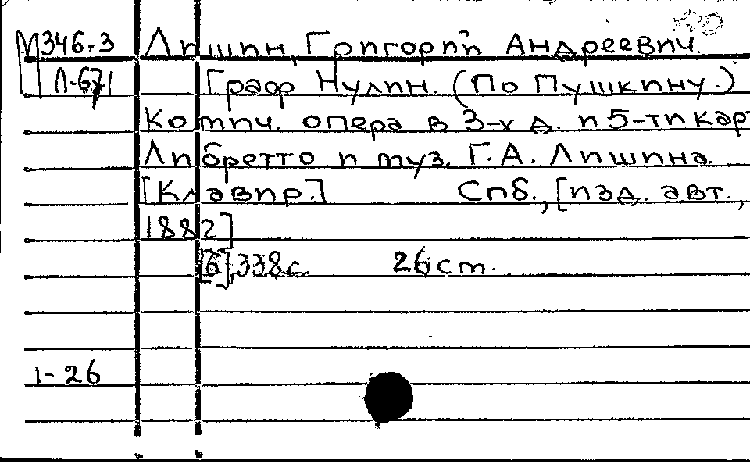 М346-3 Лишин, Григорий Андреевич.
Л-671 Граф Нулин. (По Пушкину.)
Комич. опера в 3-х д. и 5-ти карт
Либретто и муз. Г.А. Лишина.
[Клавир.] Спб., [изд. авт.,
1882]
[6], 338 с. 26 см.
1-26